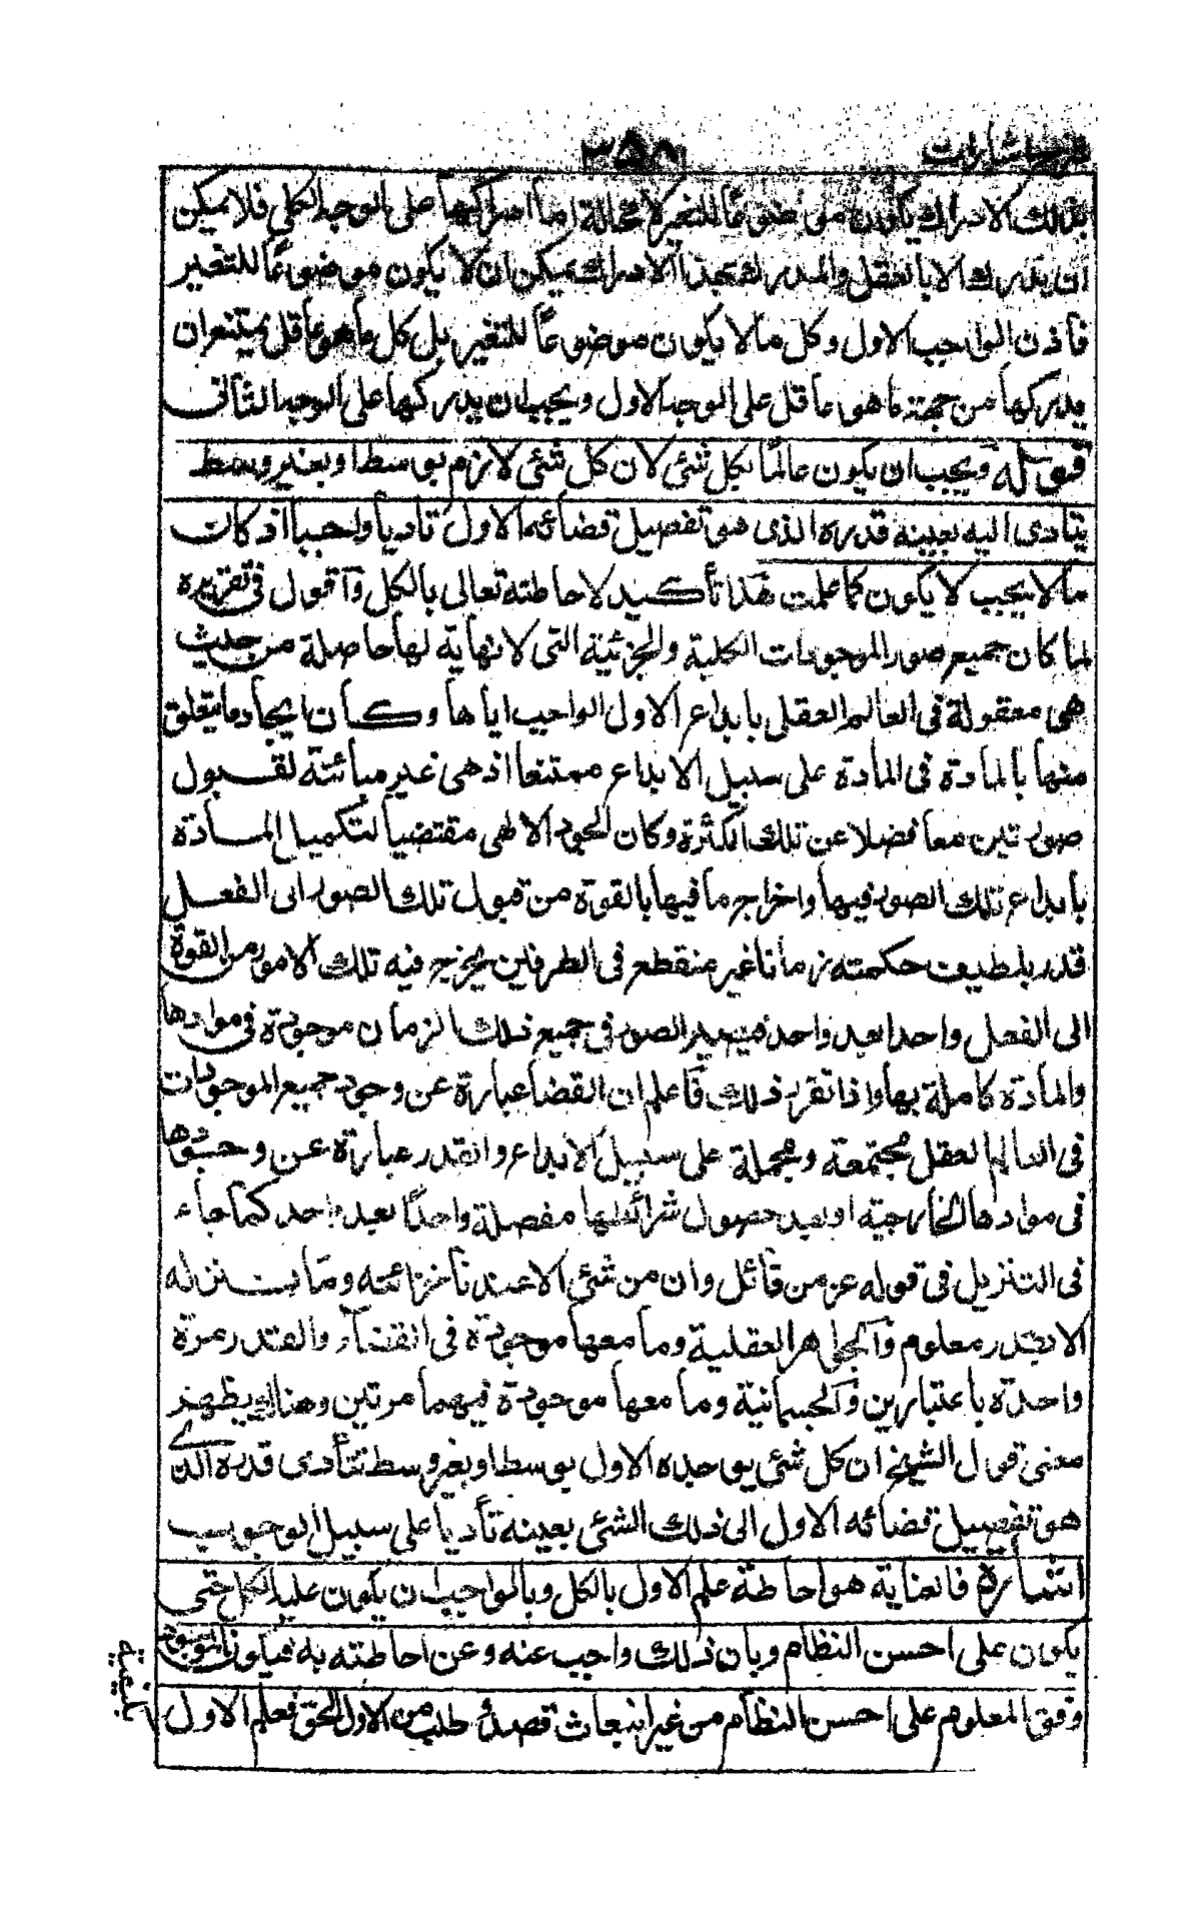 شرح اشارات
٣٥٨
بذلك الادراك يكون موضوعًا للتغير لا محالة اما ادراكها على الوجه الكلى فلا يمكن
ان يدرك الا بالعقل والمدرك بهذا الادراك يمكن ان لا يكون موضوعًا للتغير
فاذن الواجب الاول وكل ما لا يكون موضوعًا للتغير بل كل ما هو عاقل يمتنع ان
يدركها من جهة ما هو عاقل على الوجه الاول ويجب ان يدركها على الوجه الثانى
قوله ويجب ان يكون عالمًا بكل شئ لان كل شئ لازم بوسط او بغير وسط
يتادى اليه بعينه قدره الذى هو تفصيل قضائه الاول تاديا واجبا اذ كانت
ما لا يجب لا يكون كما علمت هذا تأكيد لاحاطته تعالى بالكل وآقول فى تقريره
لما كان جميع صور الموجودات الكلية والجزئية التى لا نهاية لها حاصلة من حيث
هى معقولة فى العالم العقلى بابداع الاول الواجب اياها وكان ايجاد ما يتعلق
منها بالمادة فى المادة على سبيل الابداع ممتنعا اذ هى غير متأتية لقبول
صورتين معا فضلا عن تلك الكثرة وكان الجود الالهى مقتضيا لتكميل المادة
بابداع تلك الصور فيها واخراج ما فيها بالقوة من قبول تلك الصور الى الفعل
قدر بلطيف حكمته زمانا غير منقطع فى الطرفين يخرج فيه تلك الامور من القوة
الى الفعل واحدا بعد واحد فيصير الصور فى جميع ذلك الزمان موجودة فى موادها
والمادة كاملة بها واذا تقرر ذلك فآعلم ان القضا عبارة عن وجود جميع الموجودات
فى العالم العقل مجتمعة ومجملة على سبيل الابداع والقدر عبارة عن وجودها
فى موادها الخارجية او بعد حصول شرائطها مفصلة واحدًا بعد واحد كما جاء
فى التنزيل فى قوله عز من قائل وان من شئ الا عندنا خزائنه وما ننزله
الا بقدر معلوم وآلجواهر العقلية وما معها موجودة فى القضاء والقدر مرة
واحدة باعتبارين وآلجسمانية وما معها موجودة فيهما مرتين وهناك يظهر
معنى قول الشيخ ان كل شئ يوجده الاول بوسط او بغير وسط تتأدى قدره الذى
هو تفصيل قضائه الاول الى ذلك الشئ بعينه تأديا على سبيل الوجوب
اشارة فالعناية هو احاطة علم الاول بالكل وبالواجب ان يكون عليه الكل حتى
يكون على احسن النظام وبان ذلك واجب عنه وعن احاطته به فيكون الموجود
وفق المعلوم على احسن النظام من غير انبعاث قصد وطلب من الاول الحق فعلم الاول